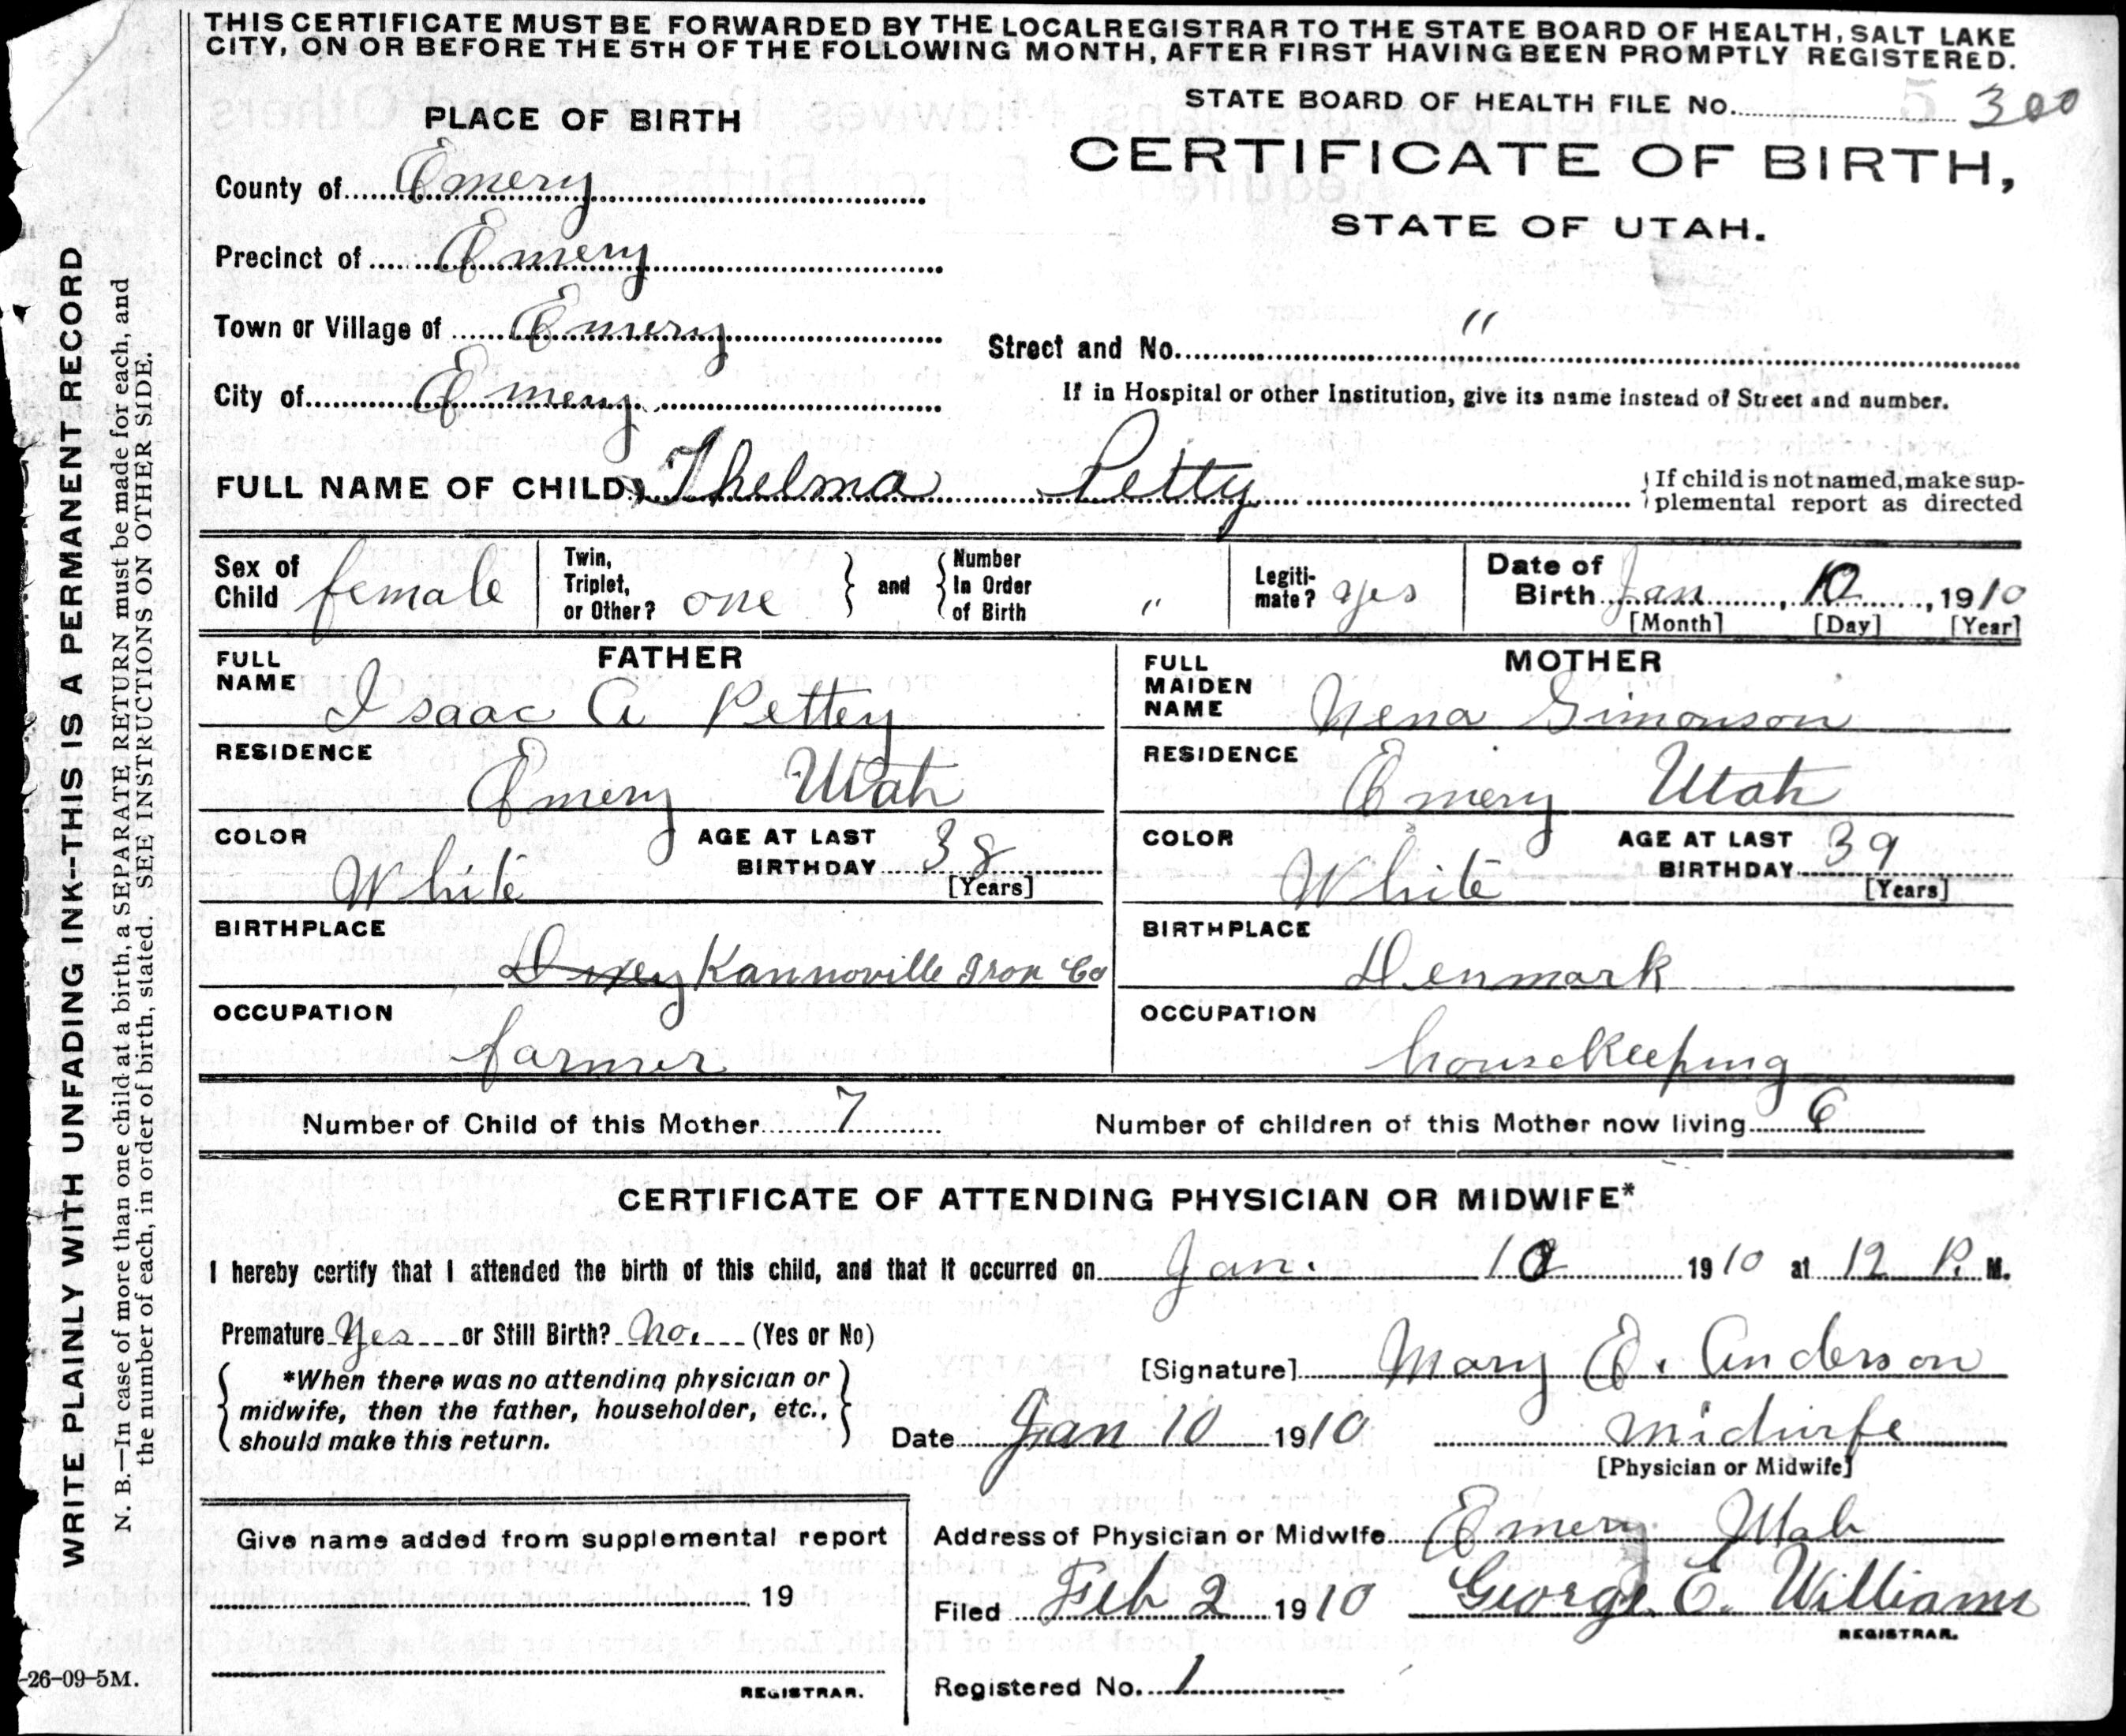 THIS CERTIFICATE MUST BE FORWARDED BY THE LOCAL REGISTRAR TO THE STATE BOARD OF HEALTH, SALT LAKE
CITY, ON OR BEFORE THE 5TH OF THE FOLLOWING MONTH, AFTER FIRST HAVING BEEN PROMPTLY REGISTERED.
STATE BOARD OF HEALTH FILE No. 300
CERTIFICATE OF BIRTH,
STATE OF UTAH.
PLACE OF BIRTH
County of Emery
Precinct of Emery
Town or Village of Emery
City of Emery
Street and No. "
If in Hospital or other Institution, give its name instead of Street and number.
FULL NAME OF CHILD Thelma Petty
If child is not named, make sup-
plemental report as directed
Sex of Child female
Twin, Triplet, or Other? one and Number In Order of Birth "
Legiti-mate? yes
Date of Birth Jan, 10, 1910
[Month] [Day] [Year]
FATHER
FULL NAME Isaac A Pettey
RESIDENCE Emery Utah
COLOR White AGE AT LAST BIRTHDAY 38 [Years]
BIRTHPLACE Dixey Kannoville Iron Co
OCCUPATION farmer
MOTHER
FULL MAIDEN NAME Nena Simonson
RESIDENCE Emery Utah
COLOR White AGE AT LAST BIRTHDAY 39 [Years]
BIRTHPLACE Denmark
OCCUPATION housekeeping
Number of Child of this Mother 7 Number of children of this Mother now living 6
CERTIFICATE OF ATTENDING PHYSICIAN OR MIDWIFE*
I hereby certify that I attended the birth of this child, and that it occurred on Jan. 10 1910 at 12 P. M.
Premature Yes or Still Birth? No. (Yes or No)
*When there was no attending physician or
midwife, then the father, householder, etc.,
should make this return.
[Signature] Mary E. Anderson
Date Jan 10 1910 midwife
[Physician or Midwife]
Give name added from supplemental report
19
REGISTRAR.
Address of Physician or Midwife Emery Utah
Filed Feb 2 1910 George E. Williams
REGISTRAR.
Registered No. 1
WRITE PLAINLY WITH UNFADING INK--THIS IS A PERMANENT RECORD
N. B.—In case of more than one child at a birth, a SEPARATE RETURN must be made for each, and
the number of each, in order of birth, stated. SEE INSTRUCTIONS ON OTHER SIDE.
-26-09-5M.